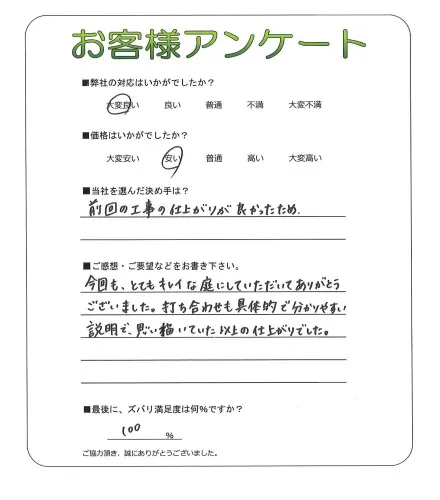 お客様アンケート
■弊社の対応はいかがでしたか？
大変良い 良い 普通 不満 大変不満
■価格はいかがでしたか？
大変安い 安い 普通 高い 大変高い
■当社を選んだ決め手は？
前回の工事の仕上がりが良かったため.
■ご感想・ご要望などをお書き下さい。
今回も、とてもキレイな庭にしていただいてありがとう
ございました。打ち合わせも具体的で分かりやすい
説明で、思い描いていた以上の仕上がりでした。
■最後に、ズバリ満足度は何％ですか？
100 %
ご協力頂き、誠にありがとうございました。